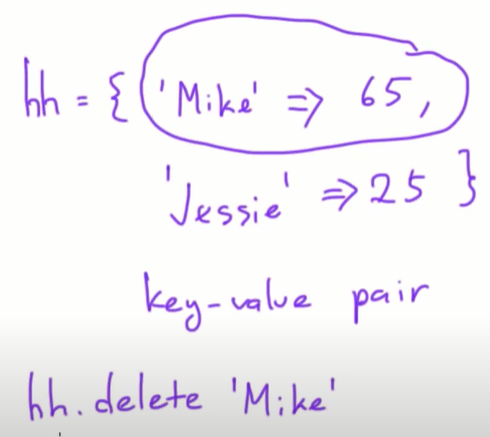 hh = { 'Mike' => 65,
'Jessie' => 25 }
key-value pair
hh.delete 'Mike'